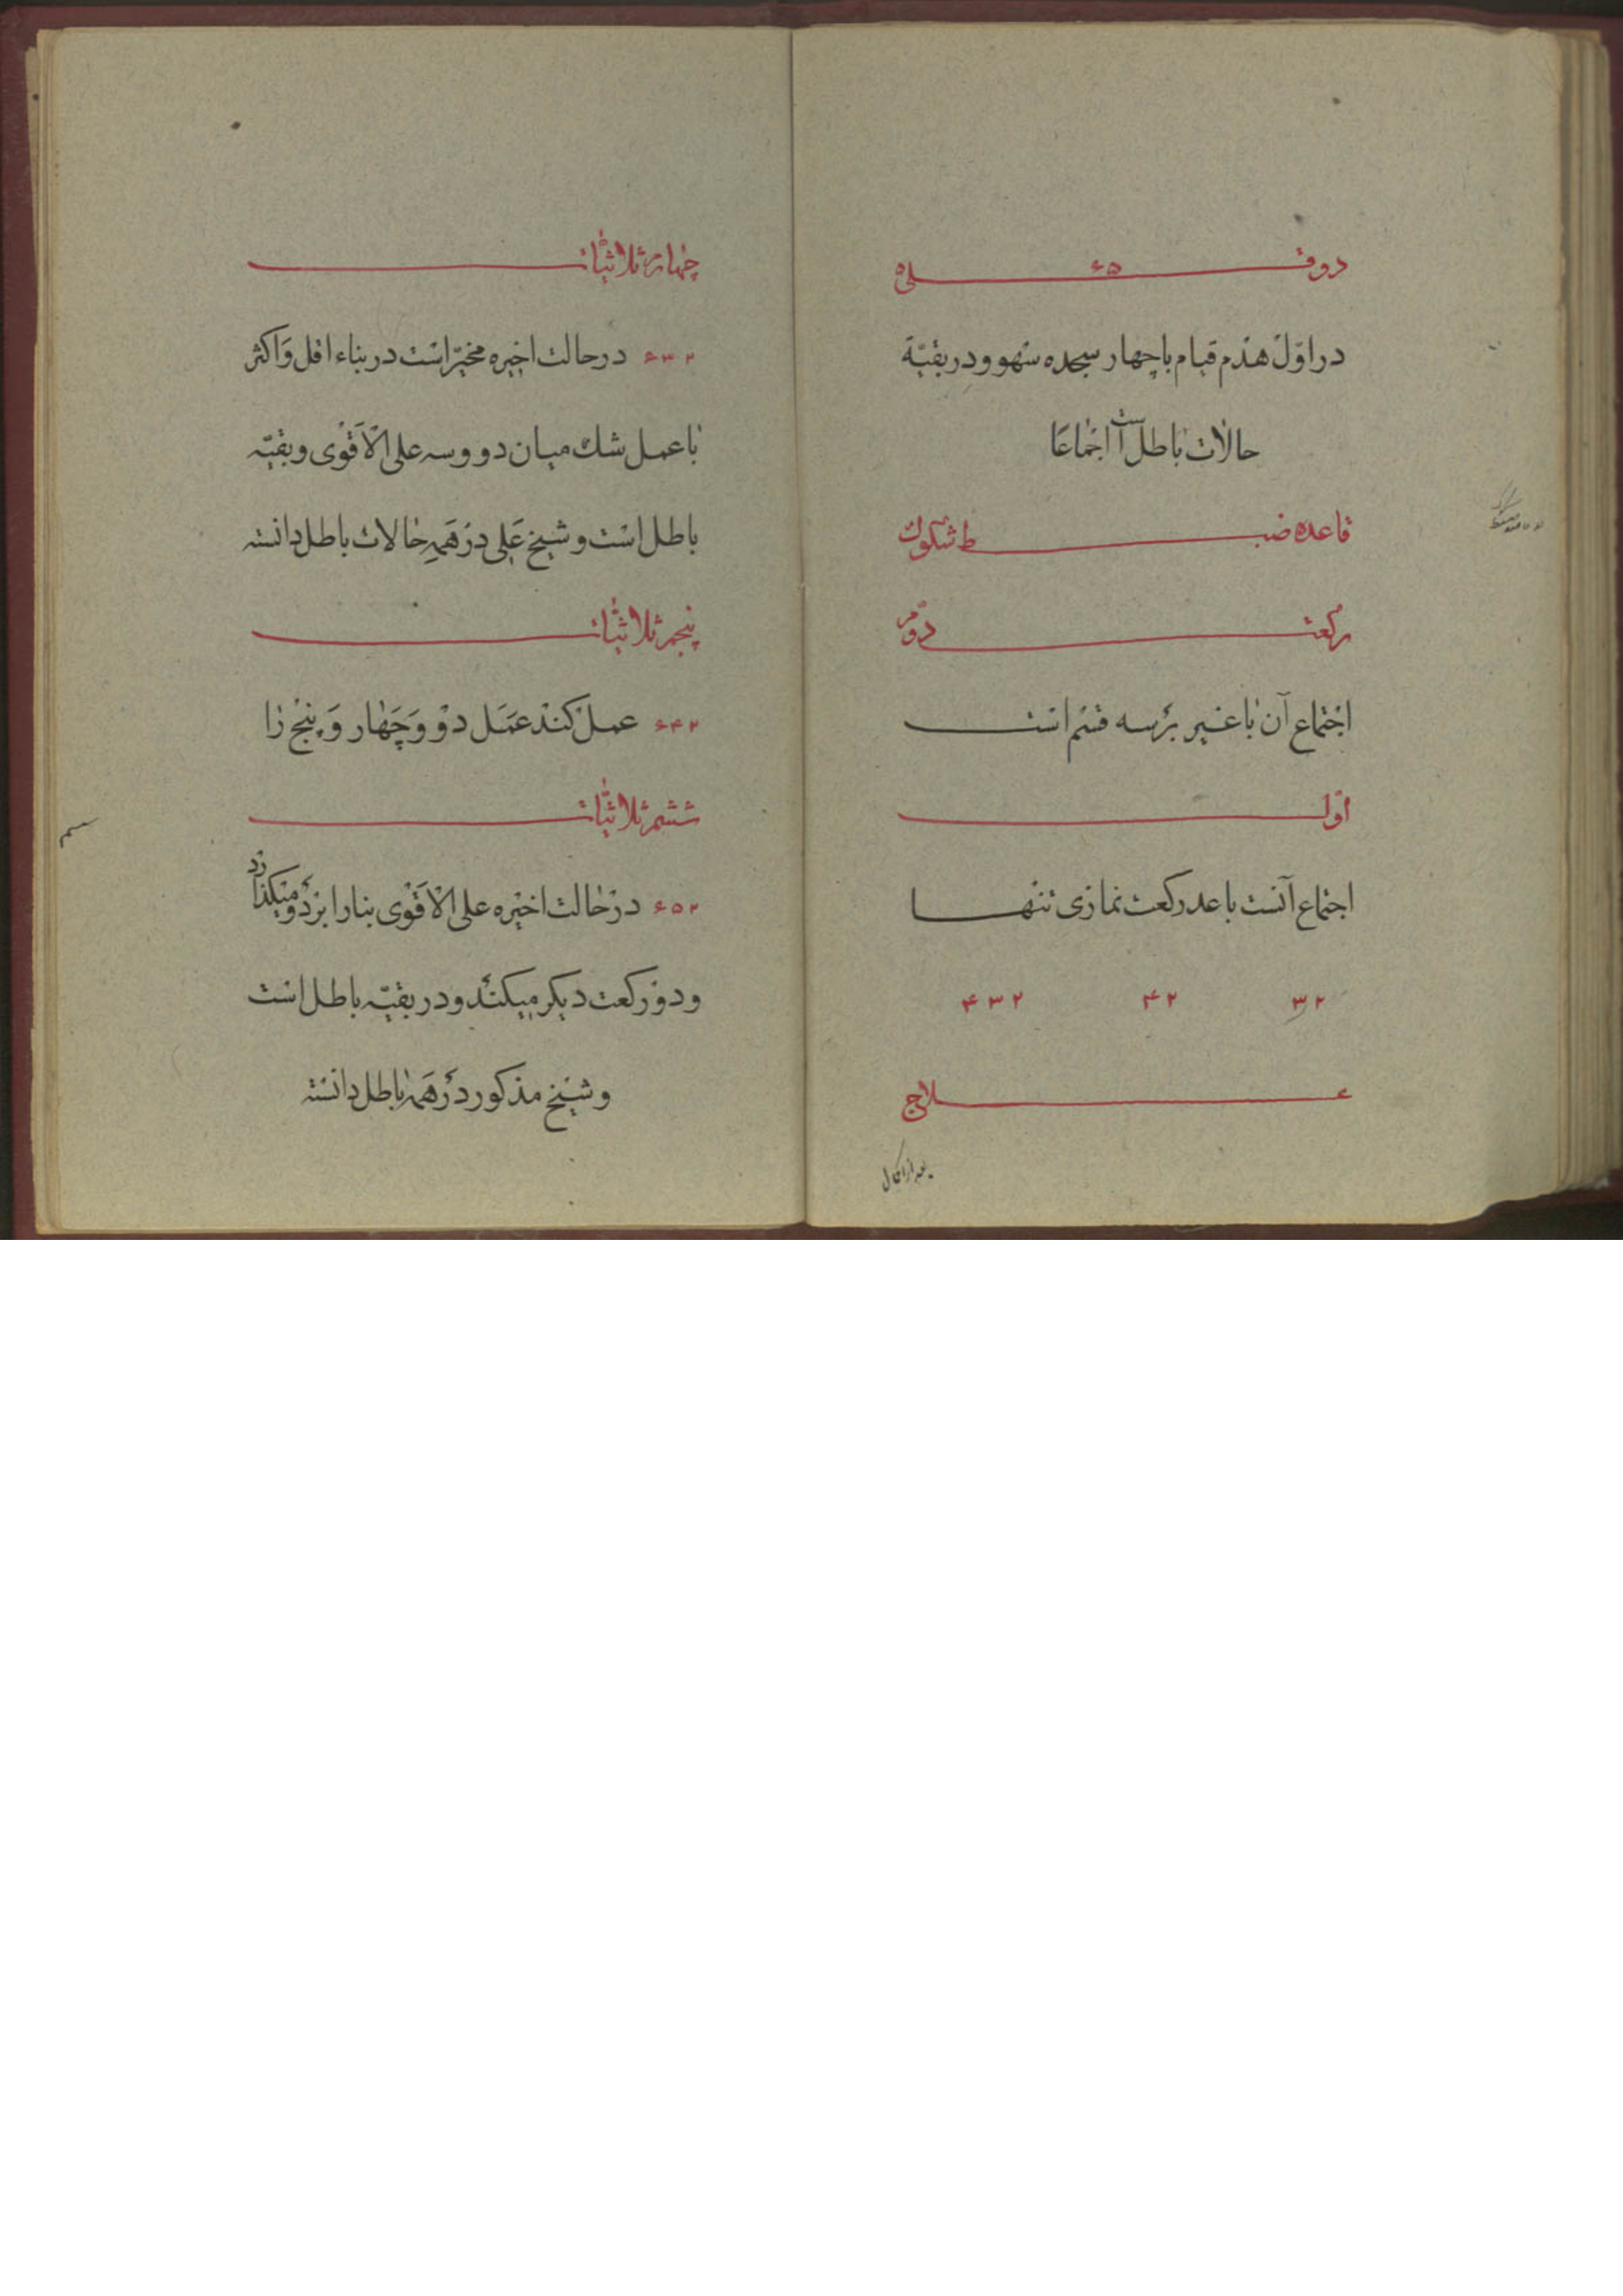 دوقله ۶۵
در اوّل هدم قیام با چهار سجده سهو و در بقیّة
حالات باطل است اجماعا
قاعده ضبط شکوک
رکعت دوّم
اجتماع آن با غیر بر سه قسم است
اوّل
اجتماع آنست با عدد رکعت نمازی تنها
۳۲ ۴۲ ۴۳۲
علاج
بعد از اکمال
چهارم ثلاثیّات
۶۳۲ در حالت اخیره مخیّر است در بناء اقل و اکثر
با عمل شک میان دو و سه علی الاَقْوی و بقیّه
باطل است و شیخ عَلی در هَمه حالات باطل دانسته
پنجم ثلاثیّات
۶۴۲ عمل کند عَمَل دو و چَهار وَ پنج را
ششم ثلاثیّات
۶۵۲ در حالت اخیره علی الاَقْوی بنا را بر دو میکذارد
و دو رکعت دیکر میکند و در بقیّه باطل است
و شیخ مذکور در هَمه باطل دانسته